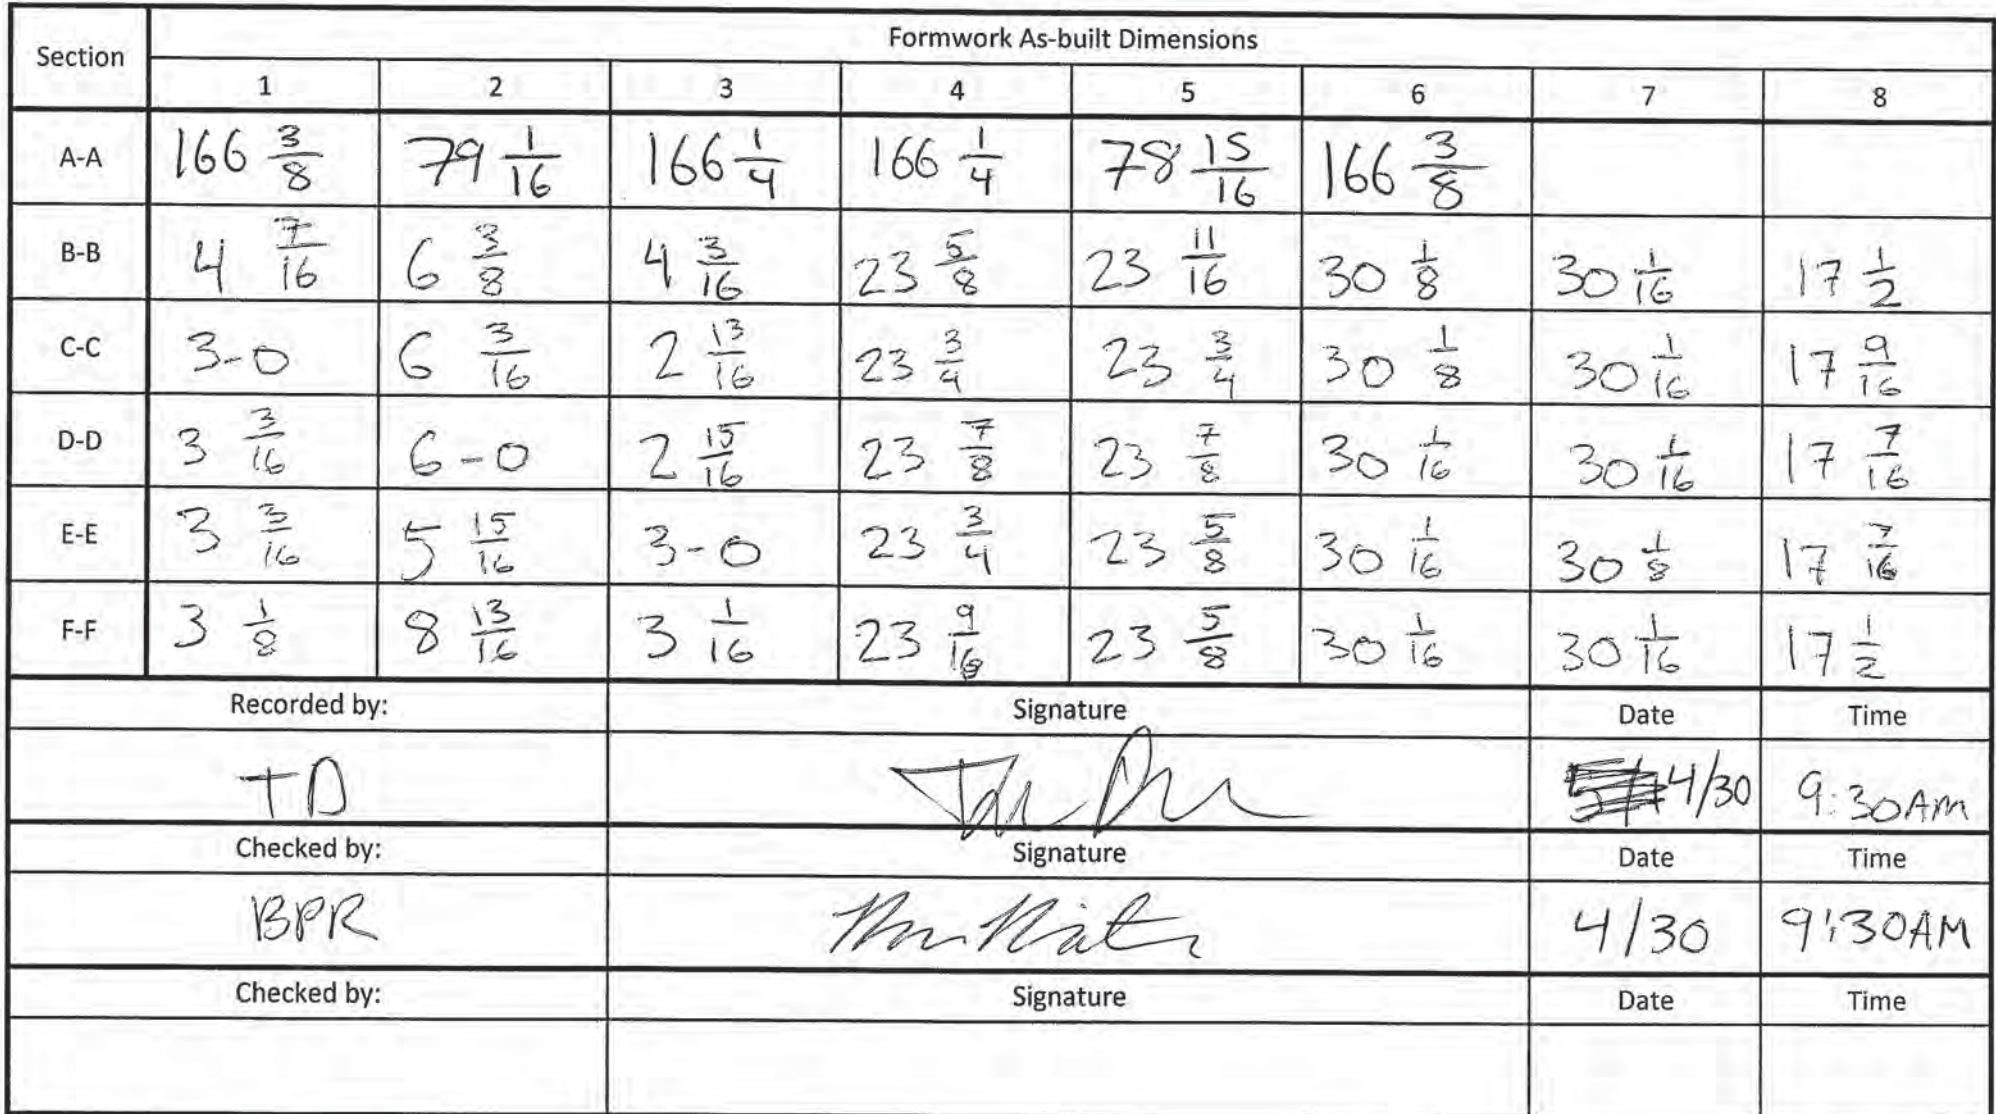 Section Formwork As-built Dimensions
1 2 3 4 5 6 7 8
A-A 166 3/8 79 1/16 166 1/4 166 1/4 78 15/16 166 3/8
B-B 4 7/16 6 3/8 4 3/16 23 5/8 23 11/16 30 1/8 30 1/16 17 1/2
C-C 3-0 6 3/16 2 13/16 23 3/4 23 3/4 30 1/8 30 1/16 17 9/16
D-D 3 3/16 6-0 2 15/16 23 7/8 23 7/8 30 1/16 30 1/16 17 7/16
E-E 3 3/16 5 15/16 3-0 23 3/4 23 5/8 30 1/16 30 1/8 17 7/16
F-F 3 1/8 8 13/16 3 1/16 23 9/16 23 5/8 30 1/16 30 1/16 17 1/2
Recorded by: Signature Date Time
TD 4/30 9:30AM
Checked by: Signature Date Time
BPR 4/30 9:30AM
Checked by: Signature Date Time